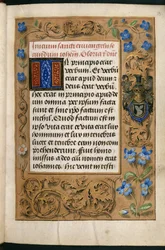 Initium sancti euangelii se
cundum iohem Gloria
In principio erat
uerbum et uerbu
erat apud deum et
deus erat uerbu
hoc erat in principio apud d
eum omnia per ipsum facta
sunt et sine ipso factum est
nichil. Quod factum est in
ipso uita erat et uita erat lux
hominum et lux in tenebris
lucet et tenebre eam non com
prehenderunt. Fuit homo
missus a deo cui nomen erat
iohannes. Hic uenit in testi